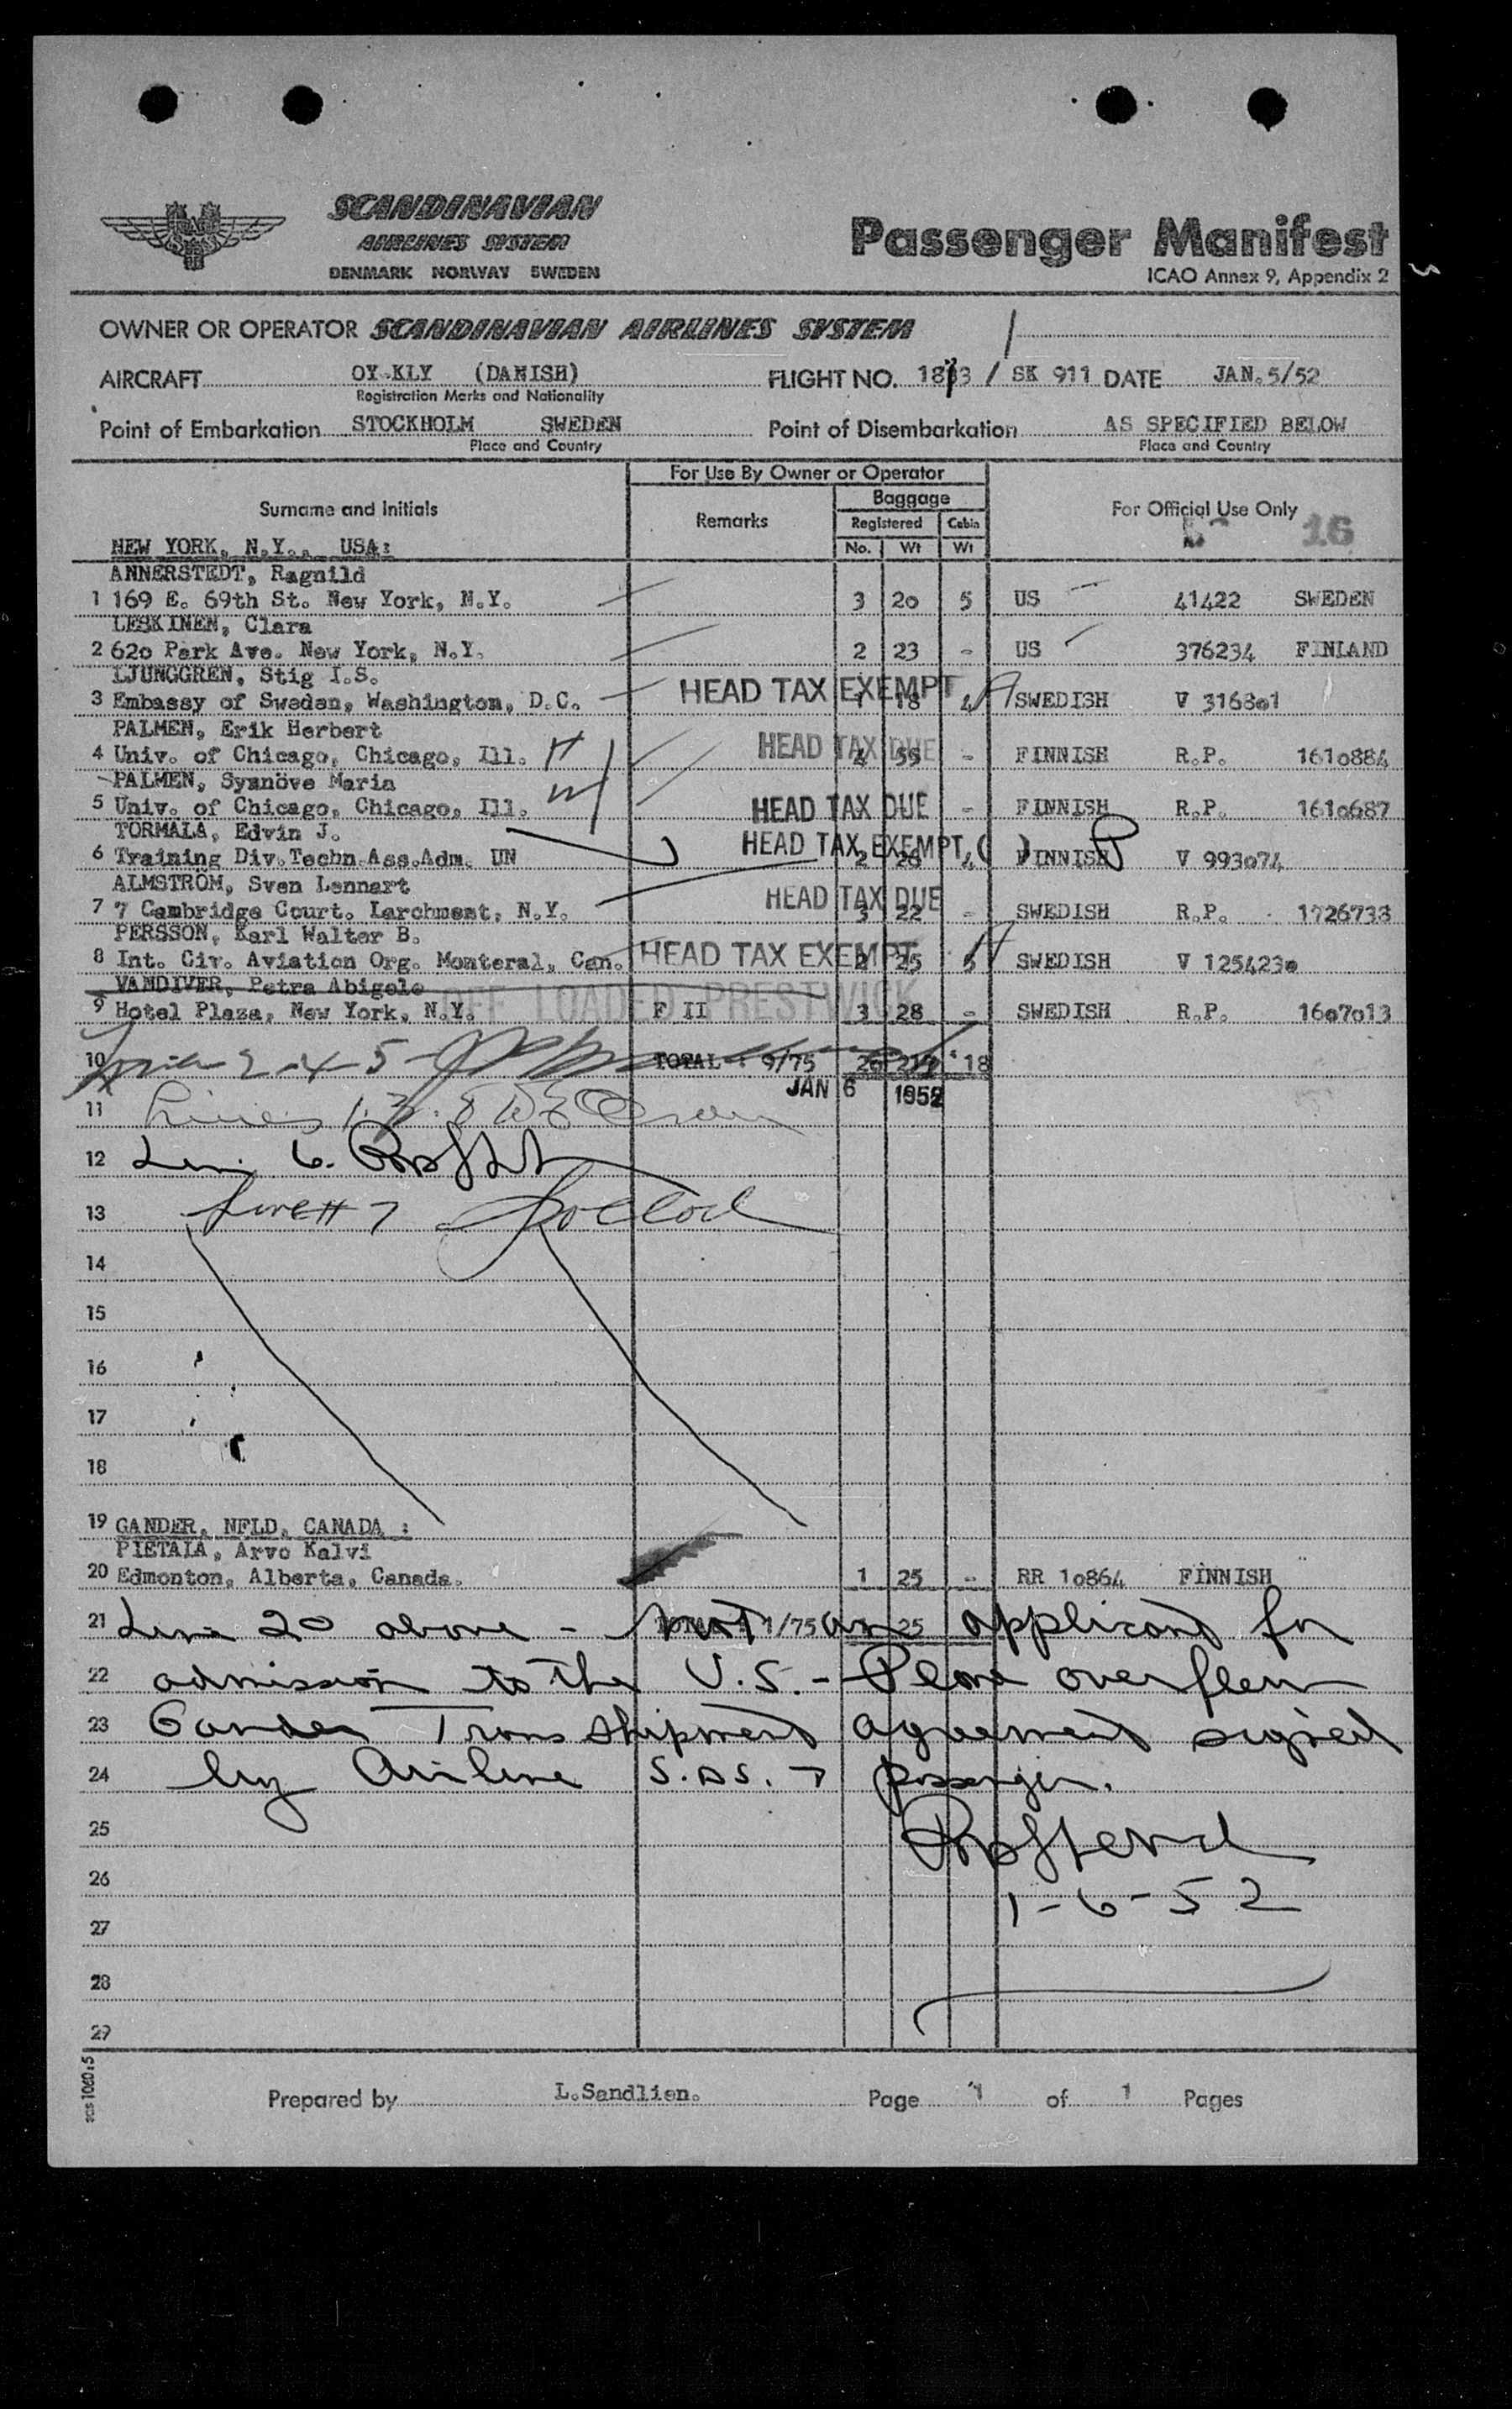 SCANDINAVIAN
AIRLINES SYSTEM
DENMARK NORWAY SWEDEN
Passenger Manifest
ICAO Annex 9, Appendix 2
OWNER OR OPERATOR SCANDINAVIAN AIRLINES SYSTEM
AIRCRAFT OY-KLY (DANISH) FLIGHT NO. 18 3 / SK 911 DATE JAN.5/52
Registration Marks and Nationality
Point of Embarkation STOCKHOLM SWEDEN Point of Disembarkation AS SPECIFIED BELOW
Place and Country Place and Country
For Use By Owner or Operator
Surname and Initials Remarks Baggage For Official Use Only
Registered Cabin
No. Wt Wt
16
NEW YORK, N.Y., USA:
ANNERSTEDT, Ragnild
1 169 E. 69th St. New York, N.Y. 3 20 5 US 41422 SWEDEN
LESKINEN, Clara
2 62o Park Ave. New York, N.Y. 2 23 - US 376234 FINLAND
LJUNGGREN, Stig I.S.
3 Embassy of Sweden, Washington, D.C. HEAD TAX EXEMPT 1 18 4 SWEDISH V 3168o1
PALMEN, Erik Herbert
4 Univ. of Chicago, Chicago, Ill. HEAD TAX DUE 4 55 - FINNISH R.P. 161o884
PALMEN, Synnöve Maria
5 Univ. of Chicago, Chicago, Ill. HEAD TAX DUE - FINNISH R.P. 161o687
TÖRMÄLÄ, Edvin J.
6 Training Div.Techn.Ass.Adm. UN HEAD TAX EXEMPT ( ) 2 26 4 FINNISH V 993o74
ALMSTRÖM, Sven Lennart
7 7 Cambridge Court. Larchment, N.Y. HEAD TAX DUE 3 22 - SWEDISH R.P. 1726738
PERSSON, Karl Walter B.
8 Int. Civ. Aviation Org. Monteral, Can. HEAD TAX EXEMPT 2 25 5 SWEDISH V 125423o
VANDIVER, Petra Abigele
OFF LOADED PRESTWICK
9 Hotel Plaza, New York, N.Y. F II 3 28 - SWEDISH R.P. 16o7o13
10 2-4-5 TOTAL : 9/75 20 217 18
JAN 6 1952
11 Lines 1.3.8
12 Line 6.
13 Line # 7
14
15
16
17
18
19 GANDER, NFLD, CANADA :
PIETALA, Arvo Kalvi
20 Edmonton, Alberta, Canada. 1 25 - RR 1o864 FINNISH
TOTAL : 1/75 25
21 Line 20 above - Not an applicant for
22 admission to the U.S. - Plane overflew
23 Gander Transshipment agreement signed
24 by Airline S.A.S. + passenger.
25
26 1-6-52
27
28
29
sas 1060:5
Prepared by L.Sandlien. Page 1 of 1 Pages